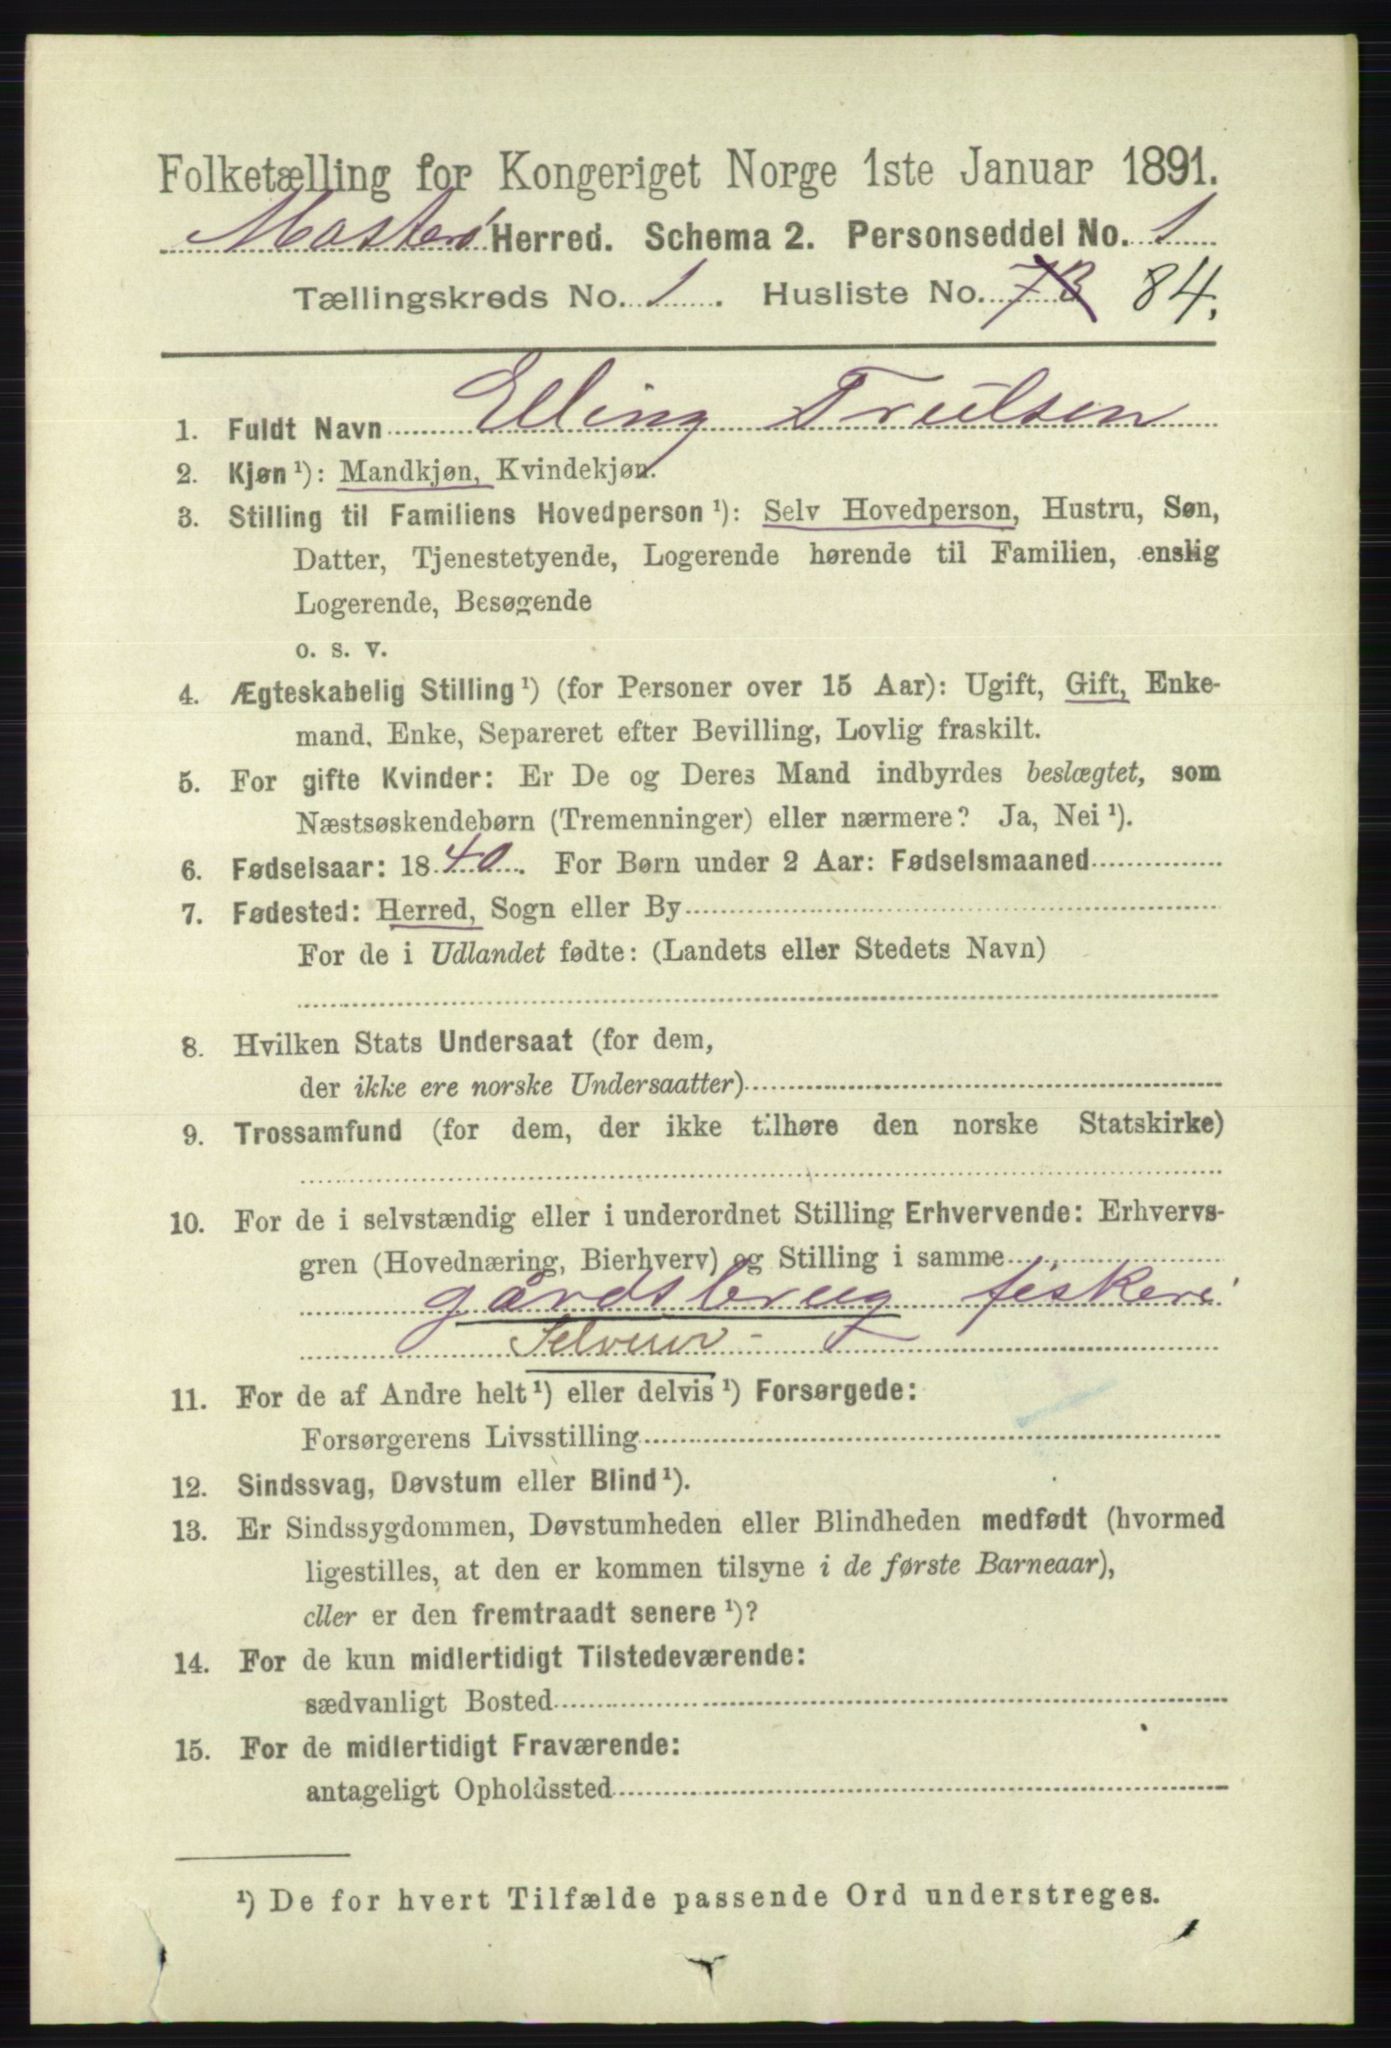 Folketælling for Kongeriget Norge 1ste Januar 1891.
Mosterø Herred. Schema 2. Personseddel No. 1
Tællingskreds No. 1. Husliste No. 73 84.
1. Fuldt Navn Elling Trulsen
2. Kjøn ¹): Mandkjøn, Kvindekjøn.
3. Stilling til Familiens Hovedperson ¹): Selv Hovedperson, Hustru, Søn,
Datter, Tjenestetyende, Logerende hørende til Familien, enslig
Logerende, Besøgende
o. s. v.
4. Ægteskabelig Stilling ¹) (for Personer over 15 Aar): Ugift, Gift, Enke-
mand, Enke, Separeret efter Bevilling, Lovlig fraskilt.
5. For gifte Kvinder: Er De og Deres Mand indbyrdes beslægtet, som
Næstsøskendebørn (Tremenninger) eller nærmere? Ja, Nei ¹).
6. Fødselsaar: 1840. For Børn under 2 Aar: Fødselsmaaned
7. Fødested: Herred, Sogn eller By
For de i Udlandet fødte: (Landets eller Stedets Navn)
8. Hvilken Stats Undersaat (for dem,
der ikke ere norske Undersaatter)
9. Trossamfund (for dem, der ikke tilhøre den norske Statskirke)
10. For de i selvstændig eller i underordnet Stilling Erhvervende: Erhvervs-
gren (Hovednæring, Bierhverv) og Stilling i samme
gårdsbrug fiskeri
Selveier
11. For de af Andre helt ¹) eller delvis ¹) Forsørgede:
Forsørgerens Livsstilling
12. Sindssvag, Døvstum eller Blind ¹).
13. Er Sindssygdommen, Døvstumheden eller Blindheden medfødt (hvormed
ligestilles, at den er kommen tilsyne i de første Barneaar),
eller er den fremtraadt senere ¹)?
14. For de kun midlertidigt Tilstedeværende:
sædvanligt Bosted
15. For de midlertidigt Fraværende:
antageligt Opholdssted
¹) De for hvert Tilfælde passende Ord understreges.